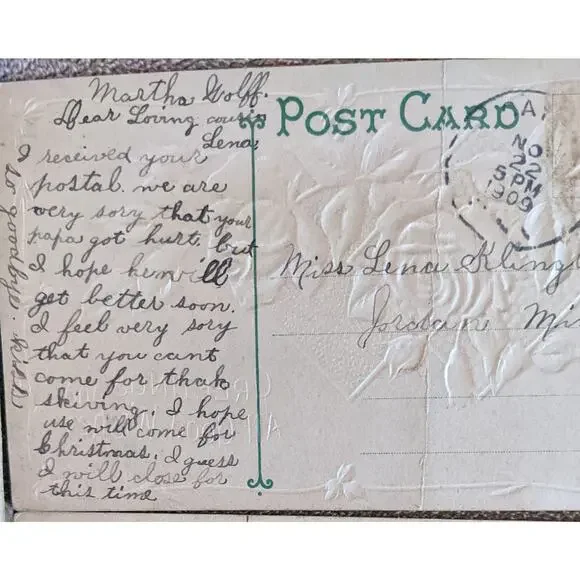 Martha Wolff.
Dear Loving cousin
Lena
I received your
postal. we are
very sory that your
papa got hurt. but
I hope he will
get better soon.
I feel very sory
that you cant
come for thak
skiving. I hope
use will come for
Christmas. I guess
I will close for
this time
goodbye.
POST CARD
A.
NO
22
5 PM
1909
Miss Lena Klingl
Jordan Mi